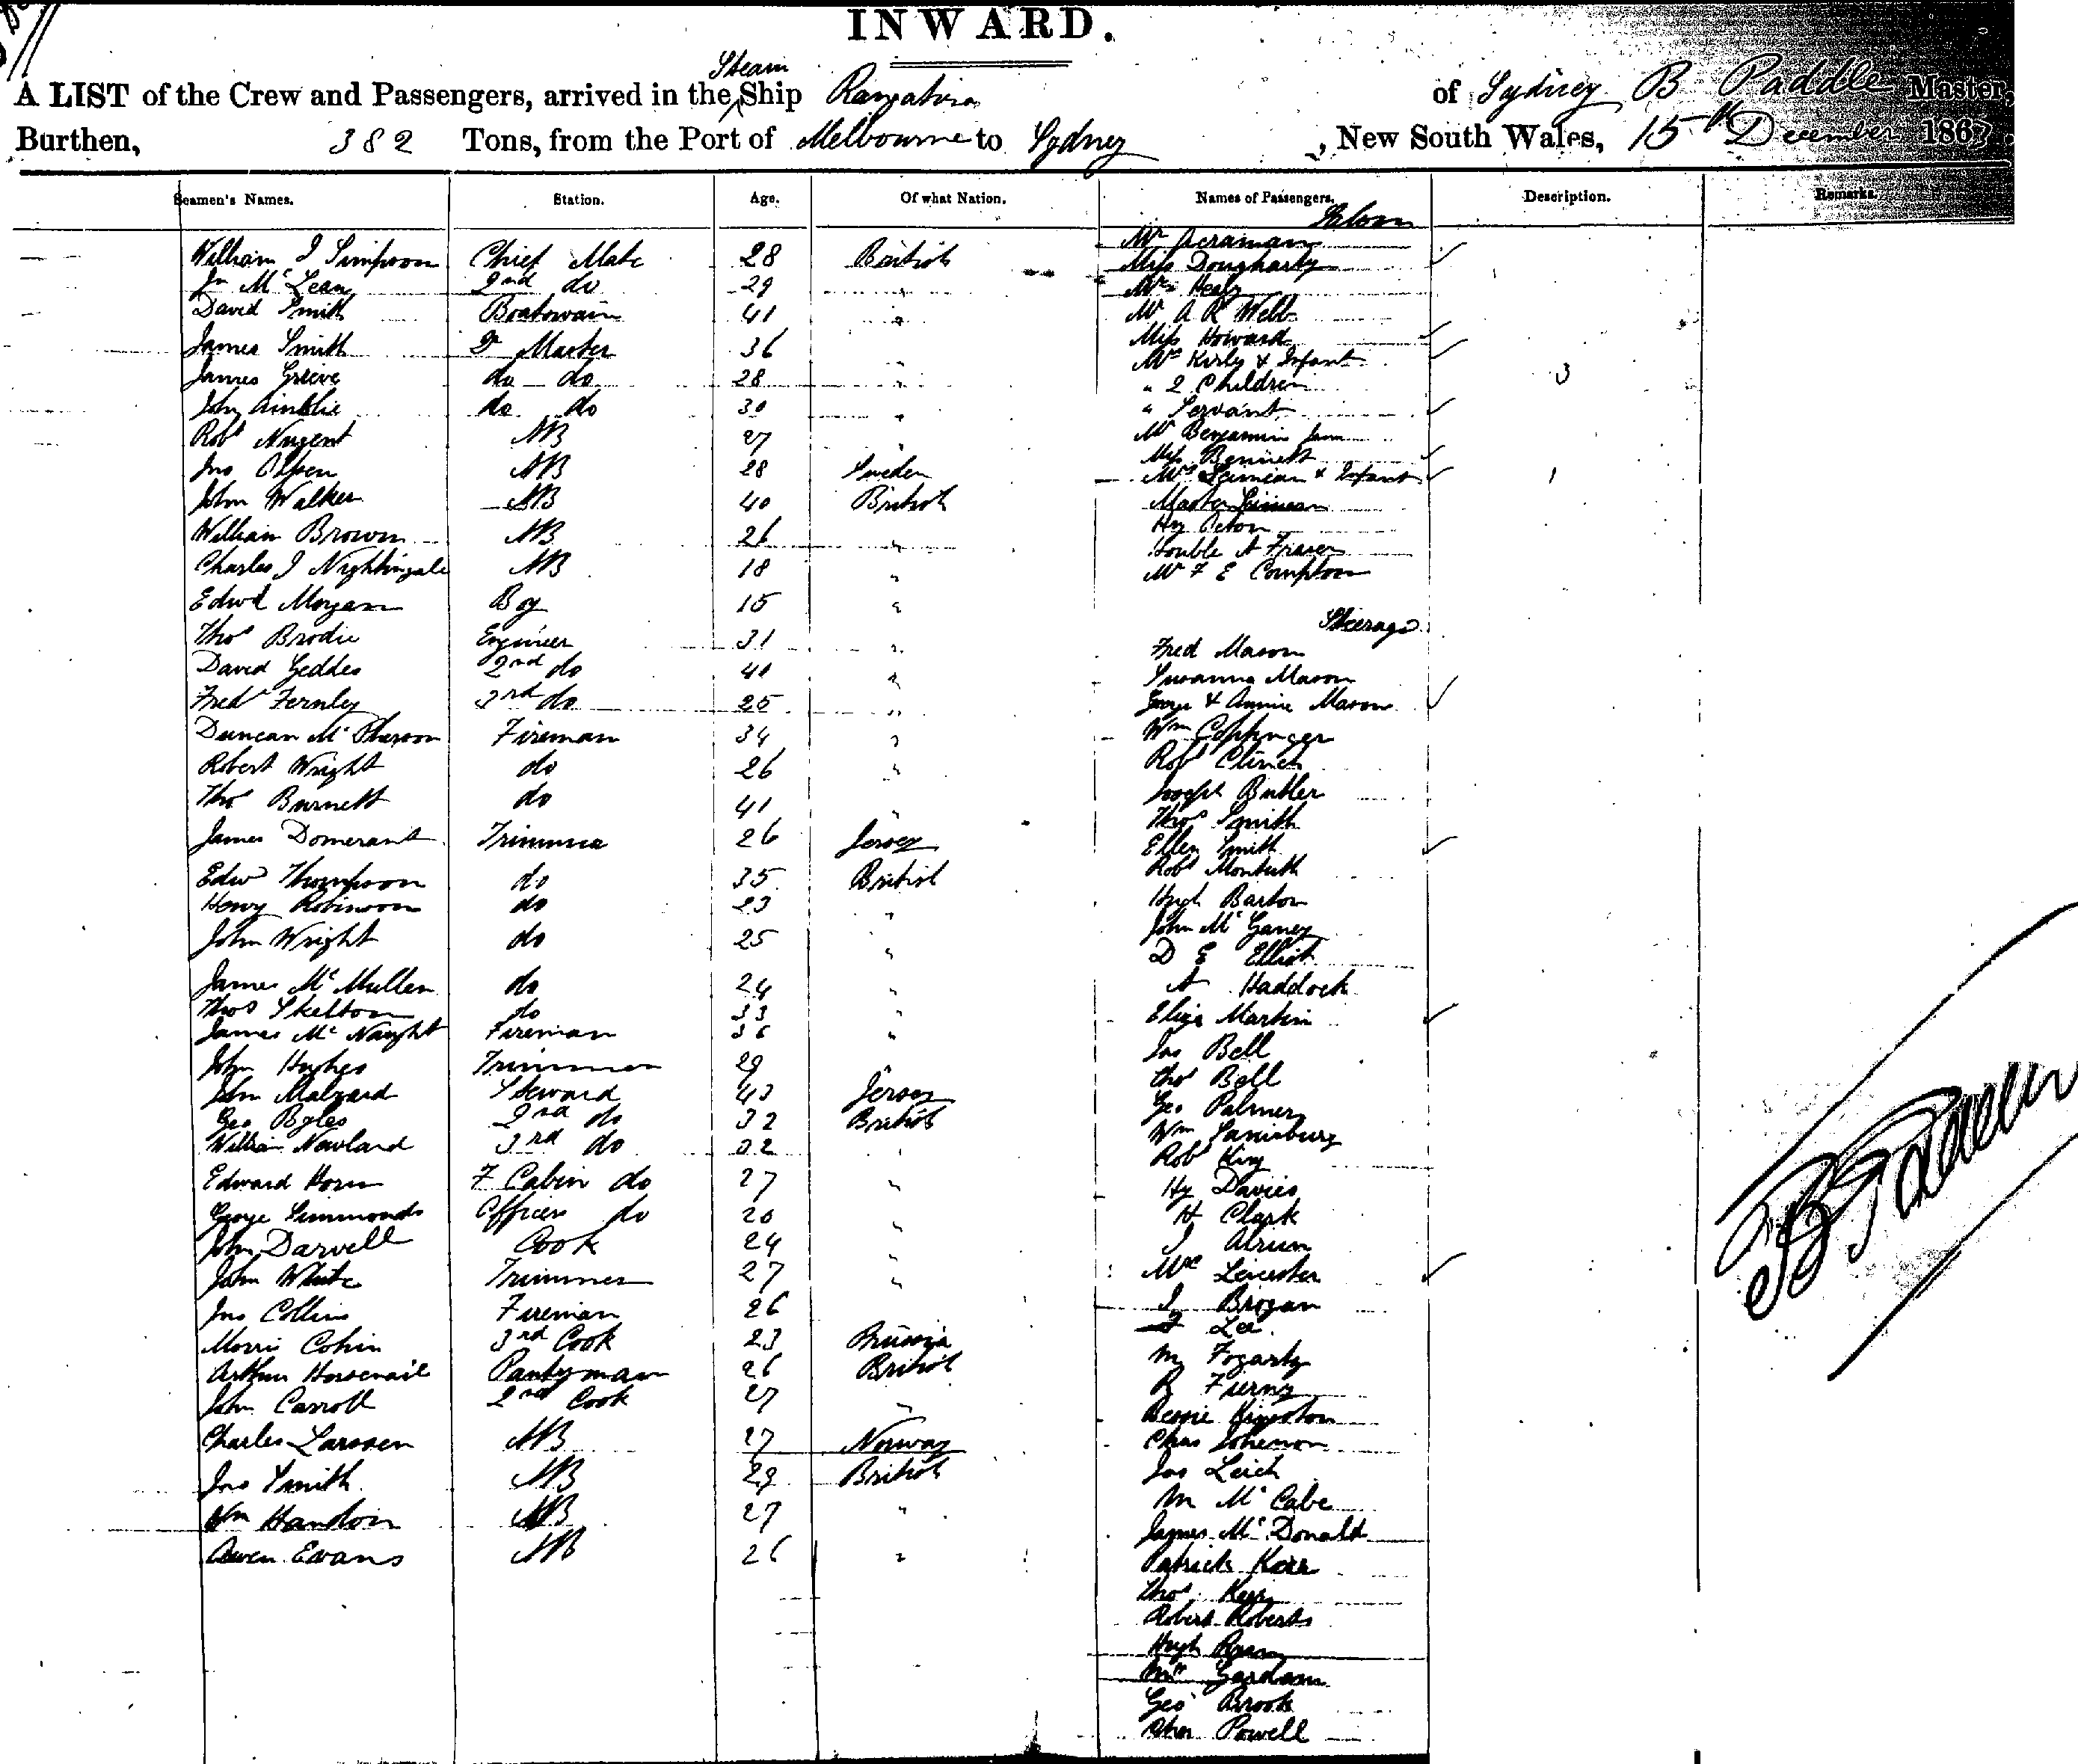 INWARD.
A LIST of the Crew and Passengers, arrived in the Steam Ship Rangatira of Sydney B Paddle Master,
Burthen, 382 Tons, from the Port of Melbourne to Sydney, New South Wales, 15th December 1867.
Seamen's Names. Station. Age. Of what Nation. Names of Passengers. Description. Remarks.
Saloon
William J Simpson Chief Mate 28 British
Jn McLean 2nd do 29 "
David Smith Boatswain 41 "
James Smith Qr Master 36
James Grieve do do 28 "
John Ainslie do do 30 "
Robt Nugent AB 27 "
Jno Olsen AB 28 Sweden
John Walker AB 40 British
William Brown AB 26 "
Charles J Nightingale AB 18 "
Edwd Morgan Boy 15 "
Thos Brodie Engineer 31 "
David Geddes 2nd do 40 "
Fredk Fernley 3rd do 25 "
Duncan McPherson Fireman 34 "
Robert Wright do 26 "
Thos Burnett do 41
James Domerant Trimmer 26 Jersey
Edwd Thompson do 35 British
Henry Robinson do 23 "
John Wright do 25 "
James McMullen do 24 "
Thos Skelton do 33 "
James McNaught Fireman 36 "
John Hughes Trimmer 29
John Malzard Steward 43 Jersey
Geo Byles 2nd do 32 British
William Newland 3rd do 32 "
Edward Horn F Cabin do 27 "
George Simmonds Officers do 20 "
John Darvell Cook 24 "
John White Trimmer 27 "
Jno Collins Fireman 26
Morris Cohin 3rd Cook 23 Prussia
Arthur Horsenail Pantryman 26 British
John Carroll 2nd Cook 27 "
Charles Larssen AB 27 Norway
Jno Smith AB 29 British
Wm Handon AB 27 "
Owen Evans AB 26 "
Mr Acraman
Miss Dougharty
Mrs Healy
Mr A R Webb
Miss Howard
Mrs Kirby & Infant
" 2 Children 3
" Servant
Mr Benjamin Junr
Miss Bennett
Mrs & Infant 1
Master
Hy
Honble A Fraser
Mr F E Compton
Steerage
Fred Mason
Susanna Mason
George & Annie Mason
Wm Coppinger
Robt Clinch
Joseph Butler
Thos Smith
Ellen Smith
Robt Monteith
Hugh Barton
John McGaney
D E Elliot
A Haddock
Eliza Martin
Jas Bell
Thos Bell
Geo Palmer
Wm
Robt King
Hy Davies
H Clark
J
Mrs Leicester
J Brogan
Lee
M Fogarty
R
Bessie Kingston
Chas Johnson
Jas Leich
M McCabe
James McDonald
Patrick Kerr
Thos Kerr
Robert Roberts
Hugh
Mrs Gardam
Geo Brook
Powell
B Paddle